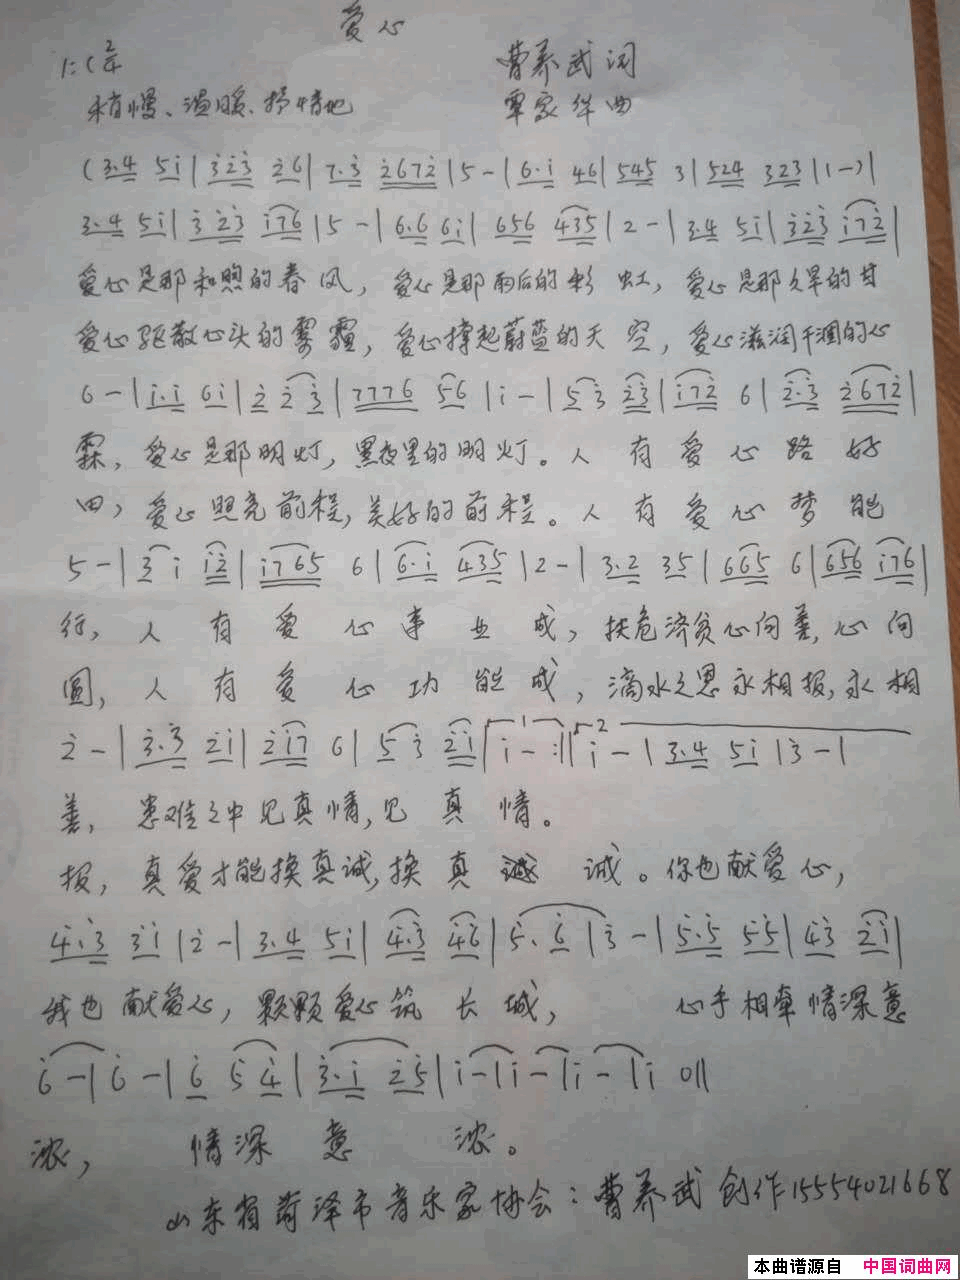 爱心
1=C 2/4
曹养武词
稍慢、温暖、抒情地
覃家作曲
(3·4 5i|323 26|7·3 2672|5-|6·i 46|545 3|524 323|1-)|
3·4 5i|3 23 i76|5-|6·6 6i|656 435|2-|3·4 5i|323 i72|
爱心是那和煦的春风，爱心是那雨后的彩虹，爱心是那久旱的甘
爱心驱散心头的雾霾，爱心撑起蔚蓝的天空，爱心滋润干涸的心
6-|i·i 6i|2 23|7776 56|i-|53 23|i72 6|2·3 2672|
霖，爱心是那明灯，黑夜里的明灯。人有爱心路好
田，爱心照亮前程，美好的前程。人有爱心梦能
5-|3i i2|i765 6|6·i 435|2-|3·2 35|665 6|656 i76|
行，人有爱心事业成，扶危济贫心向善，心向
圆，人有爱心功能成，滴水之恩永相报，永相
2-|3·3 2i|2i7 6|53 2i|1 i-:||2 i-|3·4 5i|3-|
善，患难之中见真情，见真情。
报，真爱才能换真诚，换真诚。你也献爱心，
4·3 3i|2-|3·4 5i|4·3 46|5·6|3-|5·5 55|43 2i|
我也献爱心，颗颗爱心筑长城，心手相牵情深意
6-|6-|6 54|3·i 25|i-|i-|i-|i 0||
浓，情深意浓。
山东省菏泽市音乐家协会：曹养武创作15554021668
本曲谱源自 中国词曲网